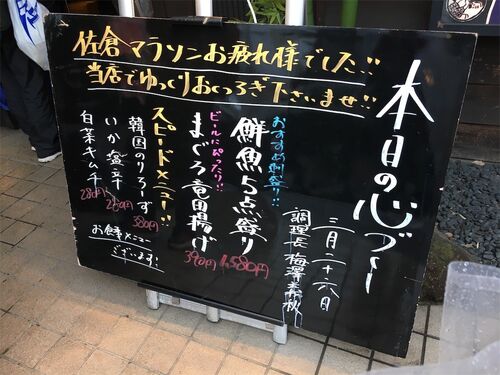 佐倉マラソンお疲れ様でした!!
当店でゆっくりおくつろぎ下さいませ!!
本日の心づくし
三月二十六日
調理長 梅澤義秋
おすすめ刺身!!
鮮魚5点盛り
1,580円
ビールにぴったり!!
まぐろ竜田揚げ
390円
スピードメニュー!!
韓国のりろーず
380円
いか塩辛
280円
白菜キムチ
280円
お食事メニュー
ございます!